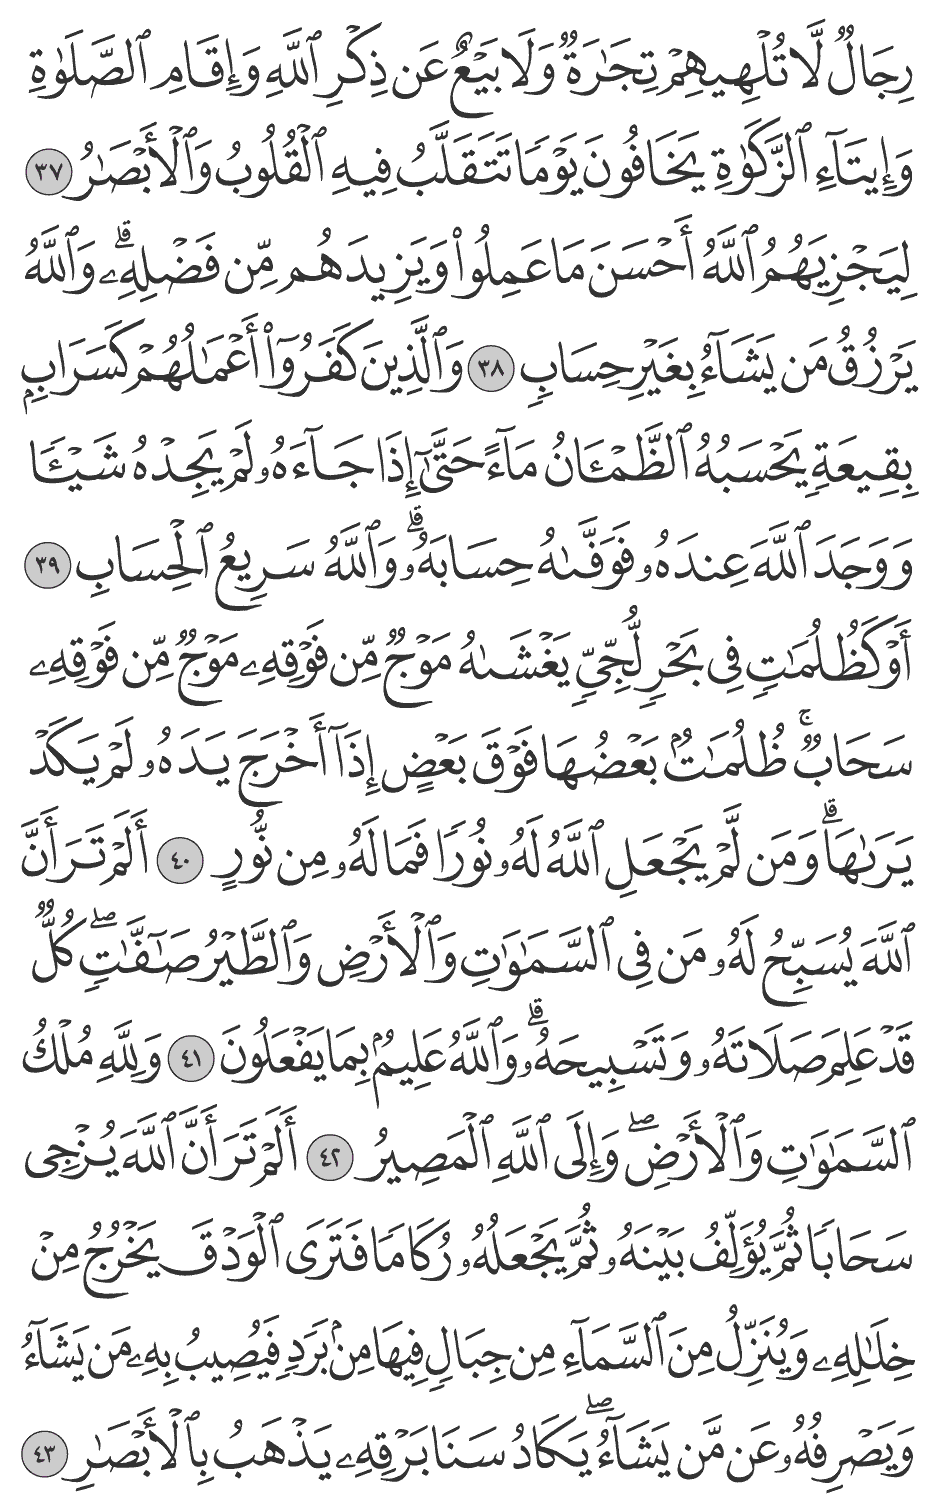 رِجَالٌ لَّا تُلْهِيهِمْ تِجَٰرَةٌ وَلَا بَيْعٌ عَن ذِكْرِ ٱللَّهِ وَإِقَامِ ٱلصَّلَوٰةِ
وَإِيتَآءِ ٱلزَّكَوٰةِ يَخَافُونَ يَوْمًا تَتَقَلَّبُ فِيهِ ٱلْقُلُوبُ وَٱلْأَبْصَٰرُ ٣٧
لِيَجْزِيَهُمُ ٱللَّهُ أَحْسَنَ مَا عَمِلُوا۟ وَيَزِيدَهُم مِّن فَضْلِهِۦ ۗ وَٱللَّهُ
يَرْزُقُ مَن يَشَآءُ بِغَيْرِ حِسَابٍ ٣٨ وَٱلَّذِينَ كَفَرُوٓا۟ أَعْمَٰلُهُمْ كَسَرَابٍۭ
بِقِيعَةٍ يَحْسَبُهُ ٱلظَّمْـَٔانُ مَآءً حَتَّىٰٓ إِذَا جَآءَهُۥ لَمْ يَجِدْهُ شَيْـًٔا
وَوَجَدَ ٱللَّهَ عِندَهُۥ فَوَفَّىٰهُ حِسَابَهُۥ ۗ وَٱللَّهُ سَرِيعُ ٱلْحِسَابِ ٣٩
أَوْ كَظُلُمَٰتٍ فِى بَحْرٍ لُّجِّىٍّ يَغْشَىٰهُ مَوْجٌ مِّن فَوْقِهِۦ مَوْجٌ مِّن فَوْقِهِۦ
سَحَابٌ ۚ ظُلُمَٰتٌۢ بَعْضُهَا فَوْقَ بَعْضٍ إِذَآ أَخْرَجَ يَدَهُۥ لَمْ يَكَدْ
يَرَىٰهَا ۗ وَمَن لَّمْ يَجْعَلِ ٱللَّهُ لَهُۥ نُورًا فَمَا لَهُۥ مِن نُّورٍ ٤٠ أَلَمْ تَرَ أَنَّ
ٱللَّهَ يُسَبِّحُ لَهُۥ مَن فِى ٱلسَّمَٰوَٰتِ وَٱلْأَرْضِ وَٱلطَّيْرُ صَٰٓفَّٰتٍ ۖ كُلٌّ
قَدْ عَلِمَ صَلَاتَهُۥ وَتَسْبِيحَهُۥ ۗ وَٱللَّهُ عَلِيمٌۢ بِمَا يَفْعَلُونَ ٤١ وَلِلَّهِ مُلْكُ
ٱلسَّمَٰوَٰتِ وَٱلْأَرْضِ ۖ وَإِلَى ٱللَّهِ ٱلْمَصِيرُ ٤٢ أَلَمْ تَرَ أَنَّ ٱللَّهَ يُزْجِى
سَحَابًا ثُمَّ يُؤَلِّفُ بَيْنَهُۥ ثُمَّ يَجْعَلُهُۥ رُكَامًا فَتَرَى ٱلْوَدْقَ يَخْرُجُ مِنْ
خِلَٰلِهِۦ وَيُنَزِّلُ مِنَ ٱلسَّمَآءِ مِن جِبَالٍ فِيهَا مِنۢ بَرَدٍ فَيُصِيبُ بِهِۦ مَن يَشَآءُ
وَيَصْرِفُهُۥ عَن مَّن يَشَآءُ ۖ يَكَادُ سَنَا بَرْقِهِۦ يَذْهَبُ بِٱلْأَبْصَٰرِ ٤٣